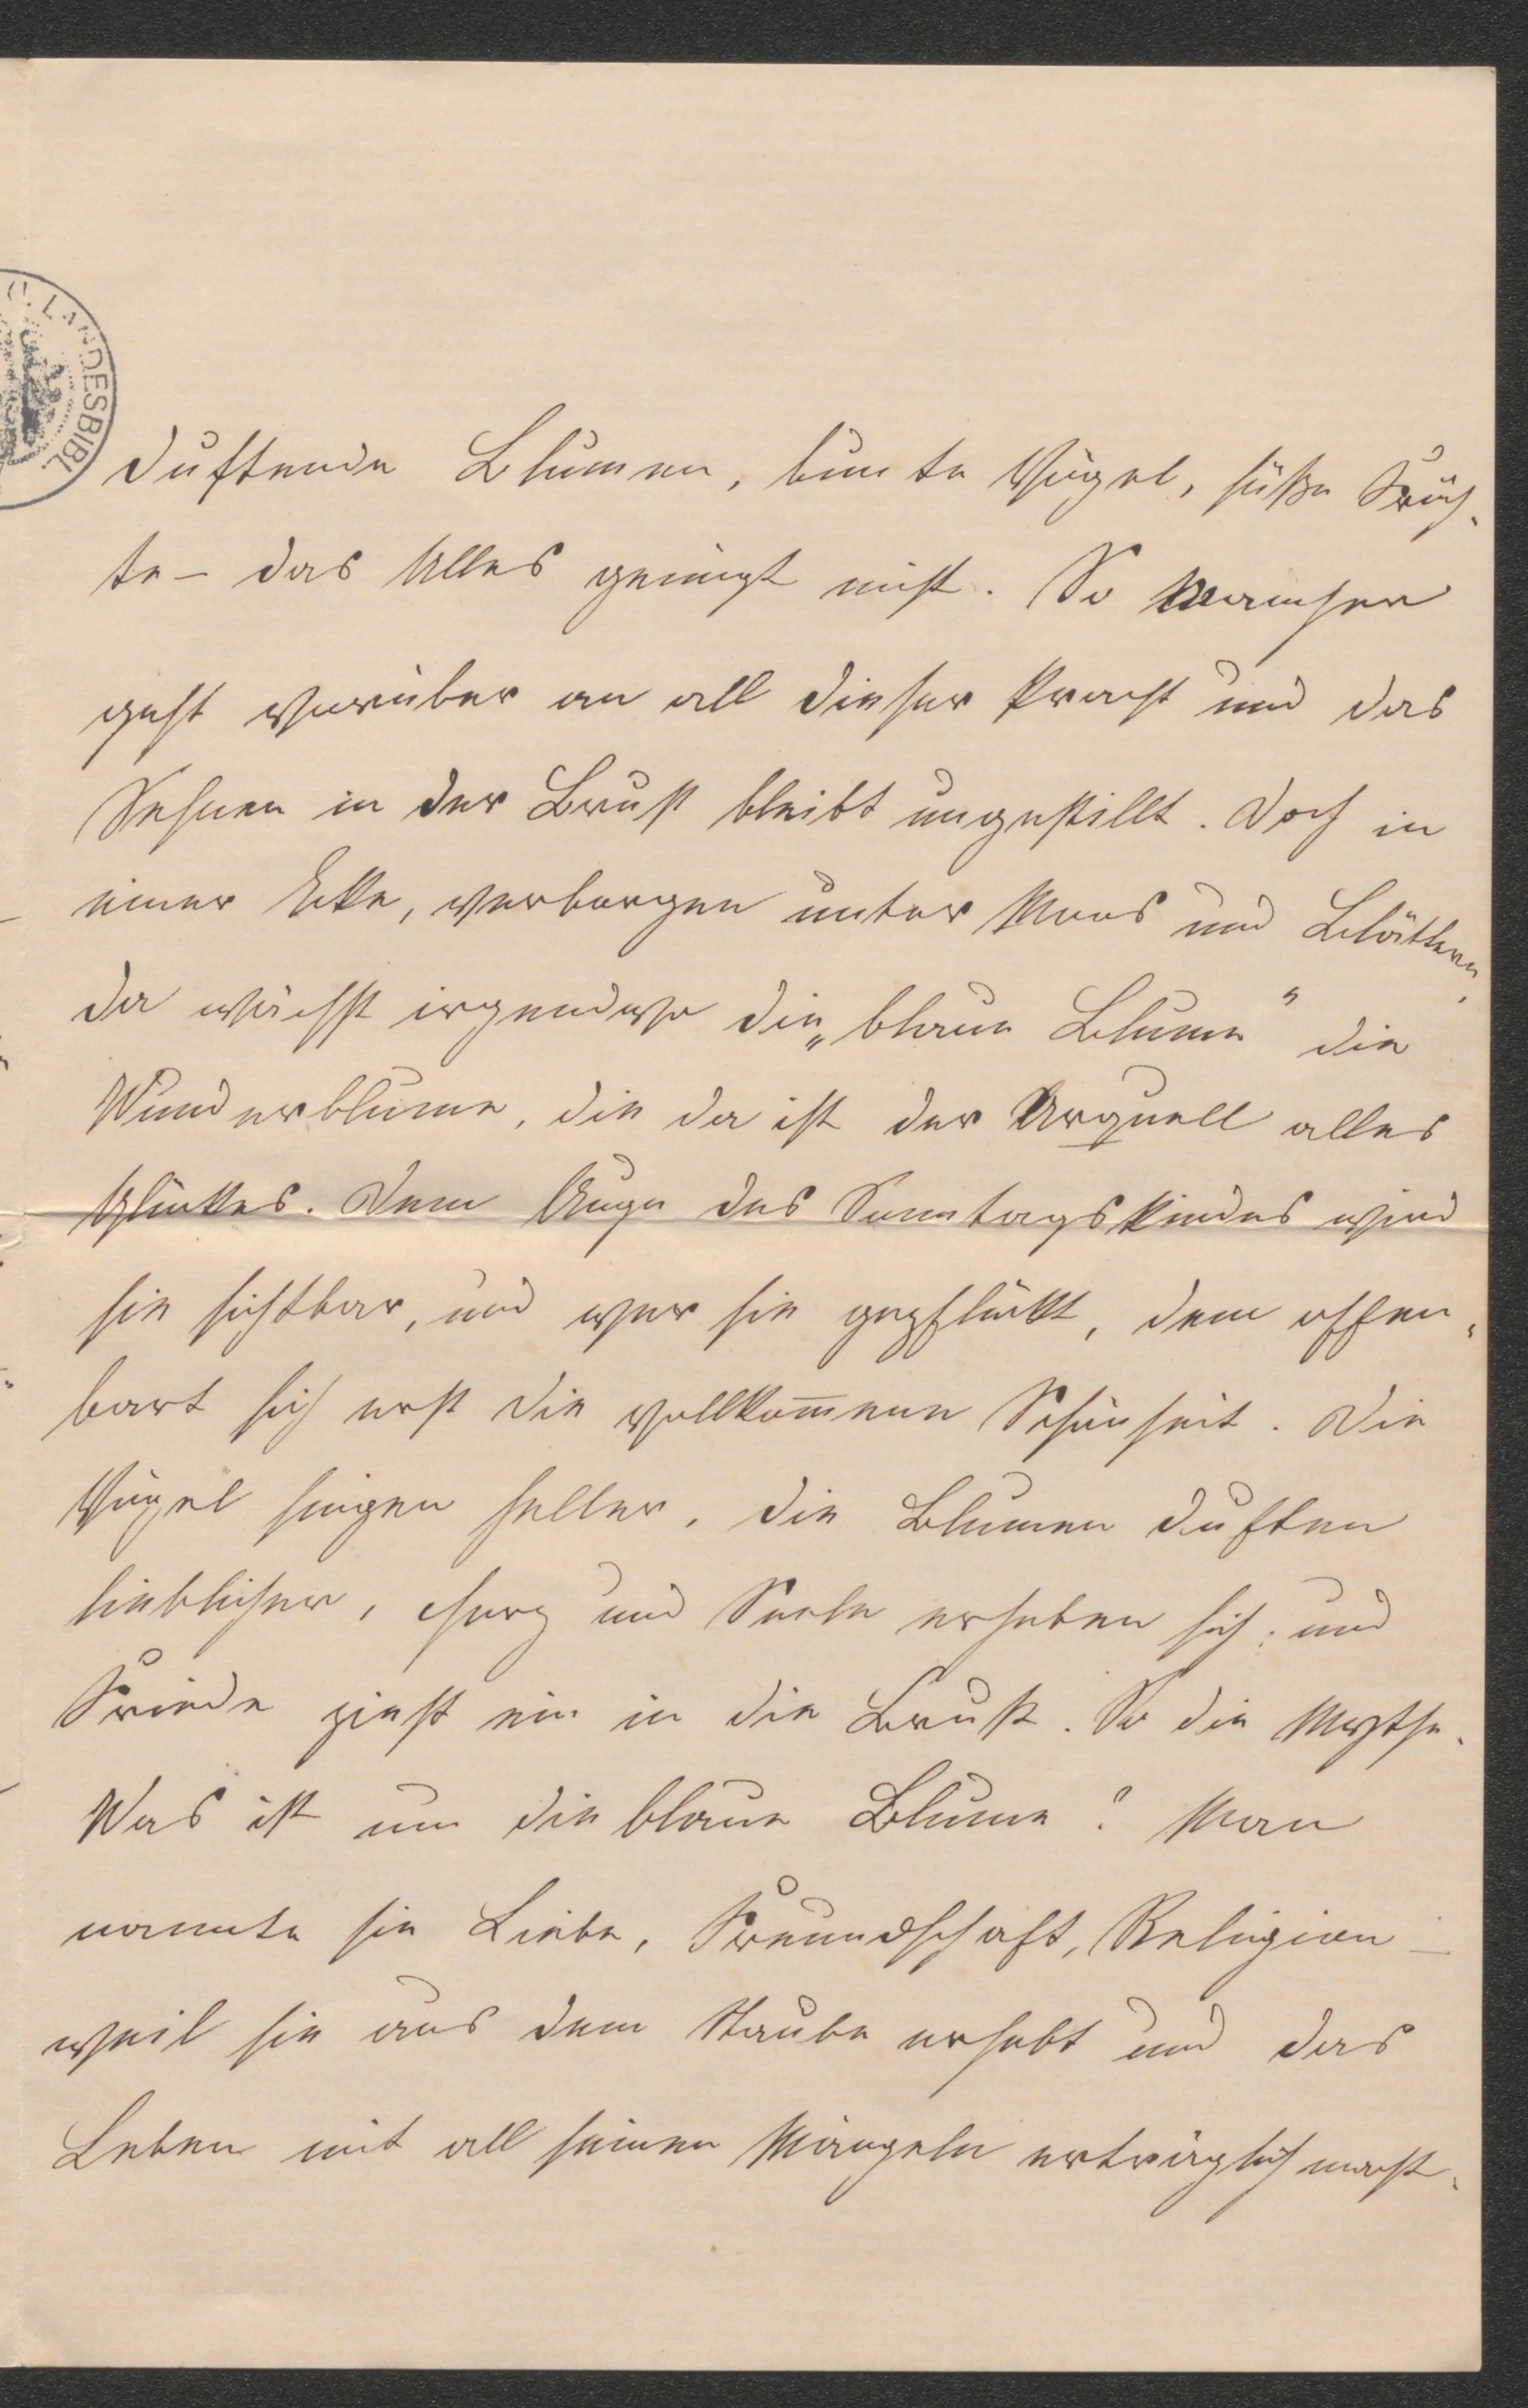 U. LANDESBIBL.
duftende Blumen, bunte Vögel, süße Früch-
te – das Alles genügt nicht. So Mancher
geht vorüber an all dieser Pracht und das
Sehnen in der Brust bleibt ungestillt. Doch in
einer Ecke, verborgen unter Moos und Blättern,
da wächst irgendwo die „blaue Blume“ die
Wunderblume, die da ist der Urquell alles
Glückes. Dem Auge des Sonntagskindes wird
sie sichtbar, und wer sie gepflückt, dem offen-
bart sich erst die vollkom̅ene Schönheit. Die
Vögel singen heller, die Blumen duften
lieblicher, Herz und Seele erheben sich; und
Friede zieht ein in die Brust. So die Mythe.
Was ist nun die blaue Blume? Man
nannte sie Liebe, Freundschaft, Religion –
weil sie aus dem Staube erhebt und das
Leben mit all seinen Mängeln erträglich macht.